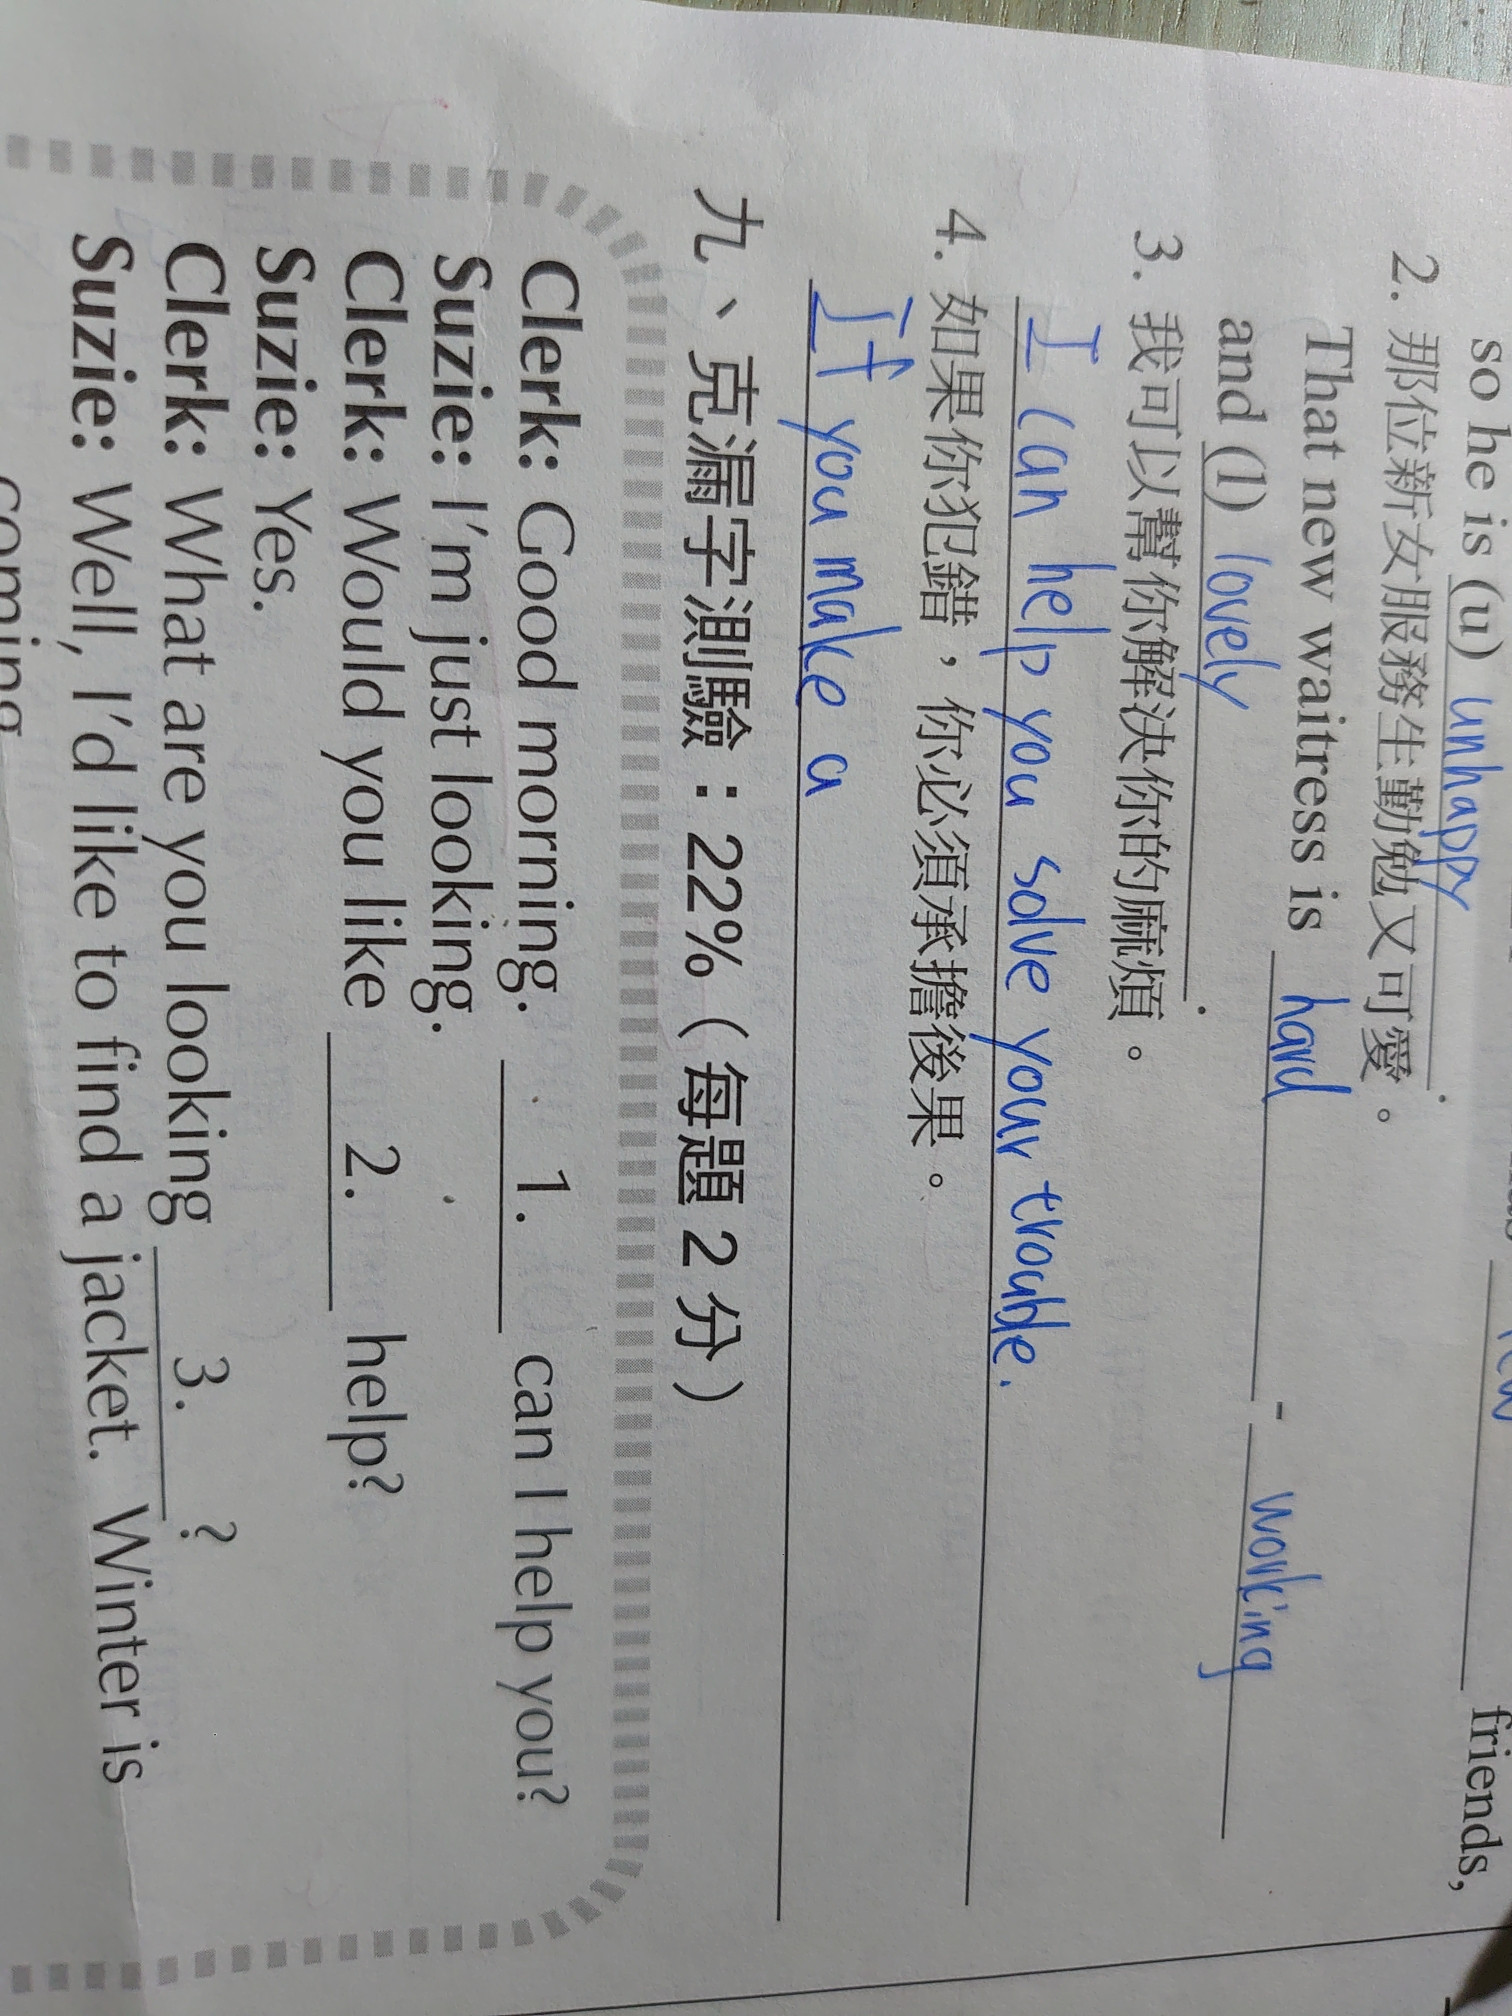 so he is (u) unhappy.
friends,
2. 那位新女服務生勤勉又可愛。
That new waitress is hard - working
and (l) lovely.
3. 我可以幫你解決你的麻煩。
I can help you solve your trouble.
4. 如果你犯錯，你必須承擔後果。
If you make a
九、克漏字測驗：22%（每題 2 分）
Clerk: Good morning. 1. can I help you?
Suzie: I'm just looking.
Clerk: Would you like 2. help?
Suzie: Yes.
Clerk: What are you looking 3. ?
Suzie: Well, I'd like to find a jacket. Winter is
coming